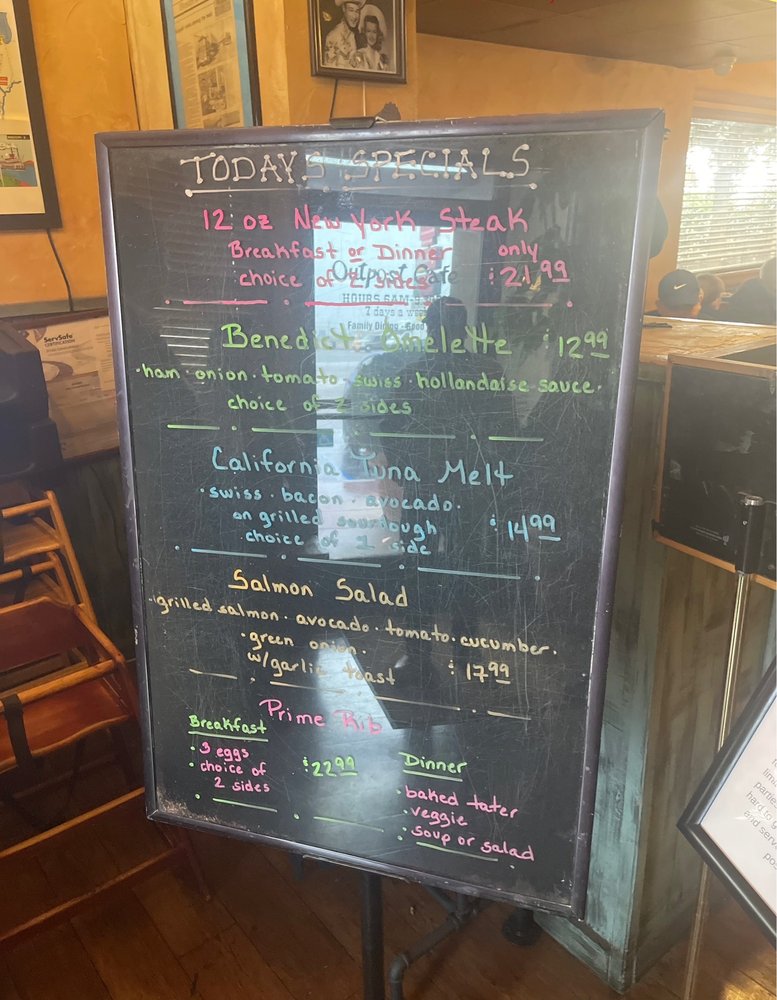 TODAYS SPECIALS
12 oz New York Steak
Breakfast or Dinner only
choice of 2 sides $21.99
Outpost Cafe
HOURS 6AM
7 days a week
Family Dining - Good
Benedict Omelette $12.99
·ham·onion·tomato·swiss·hollandaise sauce·
choice of 2 sides
California Tuna Melt
·swiss·bacon·avocado·
on grilled sourdough $14.99
choice of 1 side
Salmon Salad
·grilled salmon·avocado·tomato·cucumber·
·green onion·
w/garlic toast $17.99
Prime Rib
Breakfast
· 3 eggs
· choice of
2 sides
$22.99
Dinner
·baked tater
·veggie
·soup or salad
ServSafe
CERTIFICATION